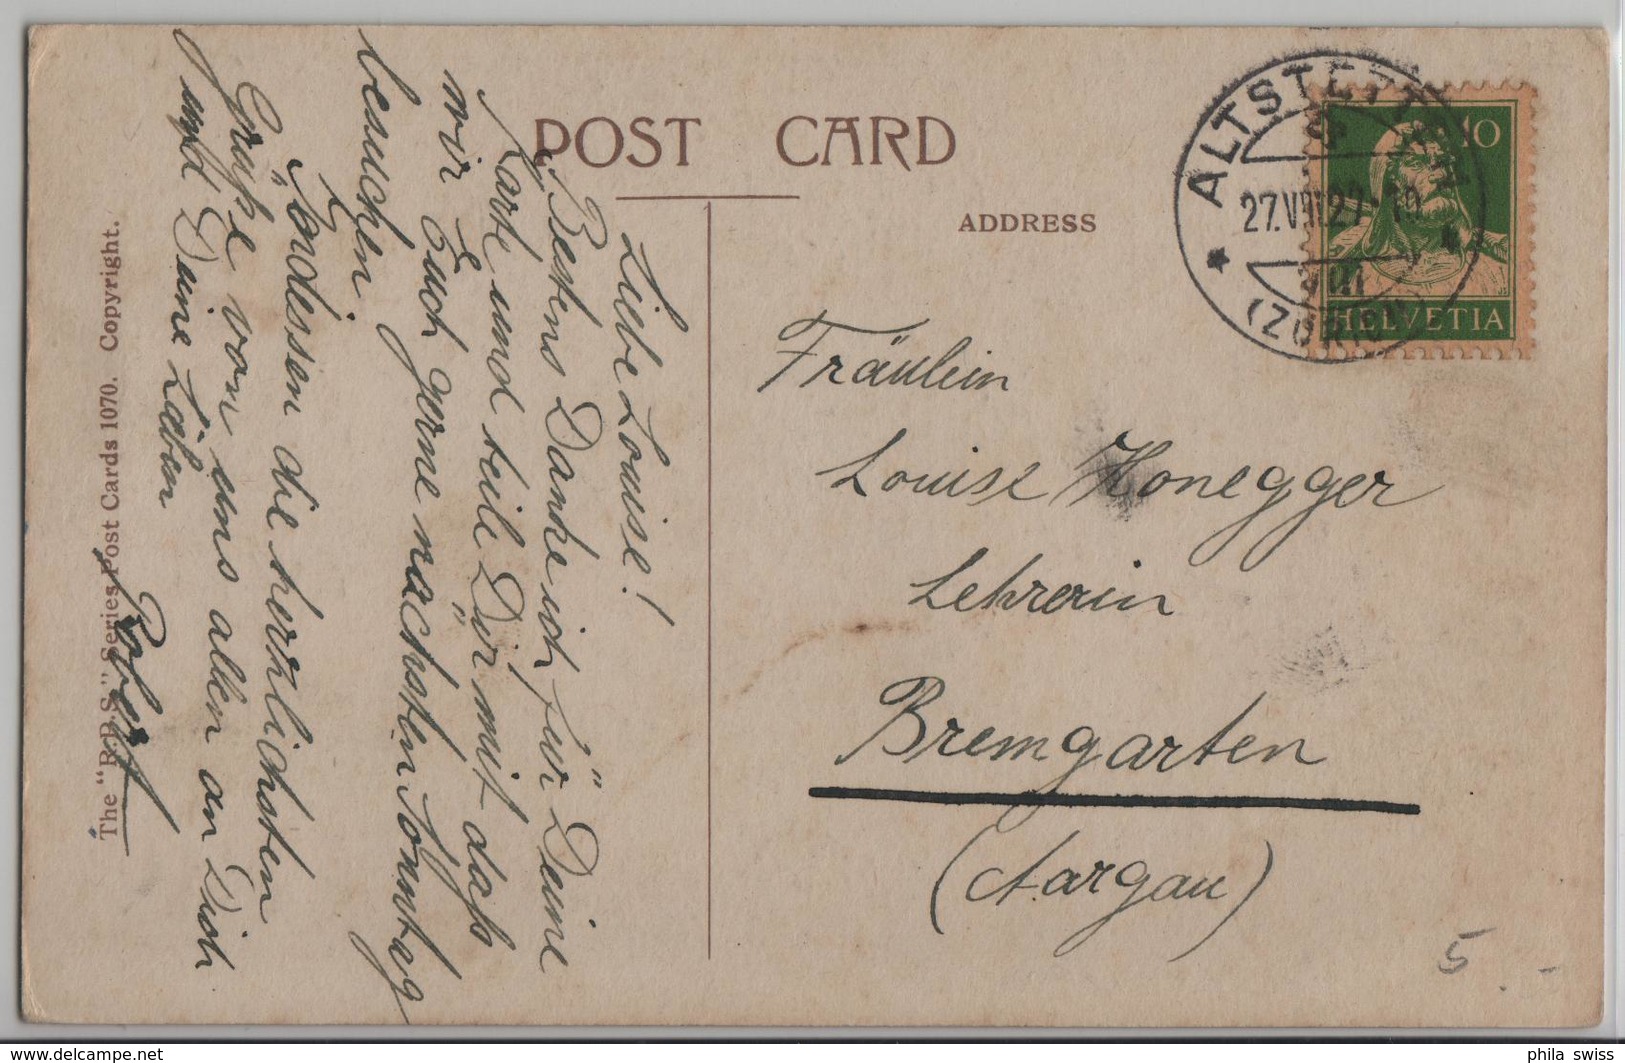 POST CARD
ADDRESS
ALTSTETTEN
27.VIII.27-19
(ZÜRICH)
10
HELVETIA
Fräulein
Louise Honegger
Lehrerin
Bremgarten
(Aargau)
5.-
Liebe Louise!
Bestens Danke ich für Deine
Karte und teile Dir mit dass
wir Euch gerne nächsten Sonntag
besuchen.
Indessen die herzlichsten
Grüße von uns allen an Dich
und Deine Lieben
Robert
The "R.P.S." Series Post Cards 1070. Copyright.
phila swiss